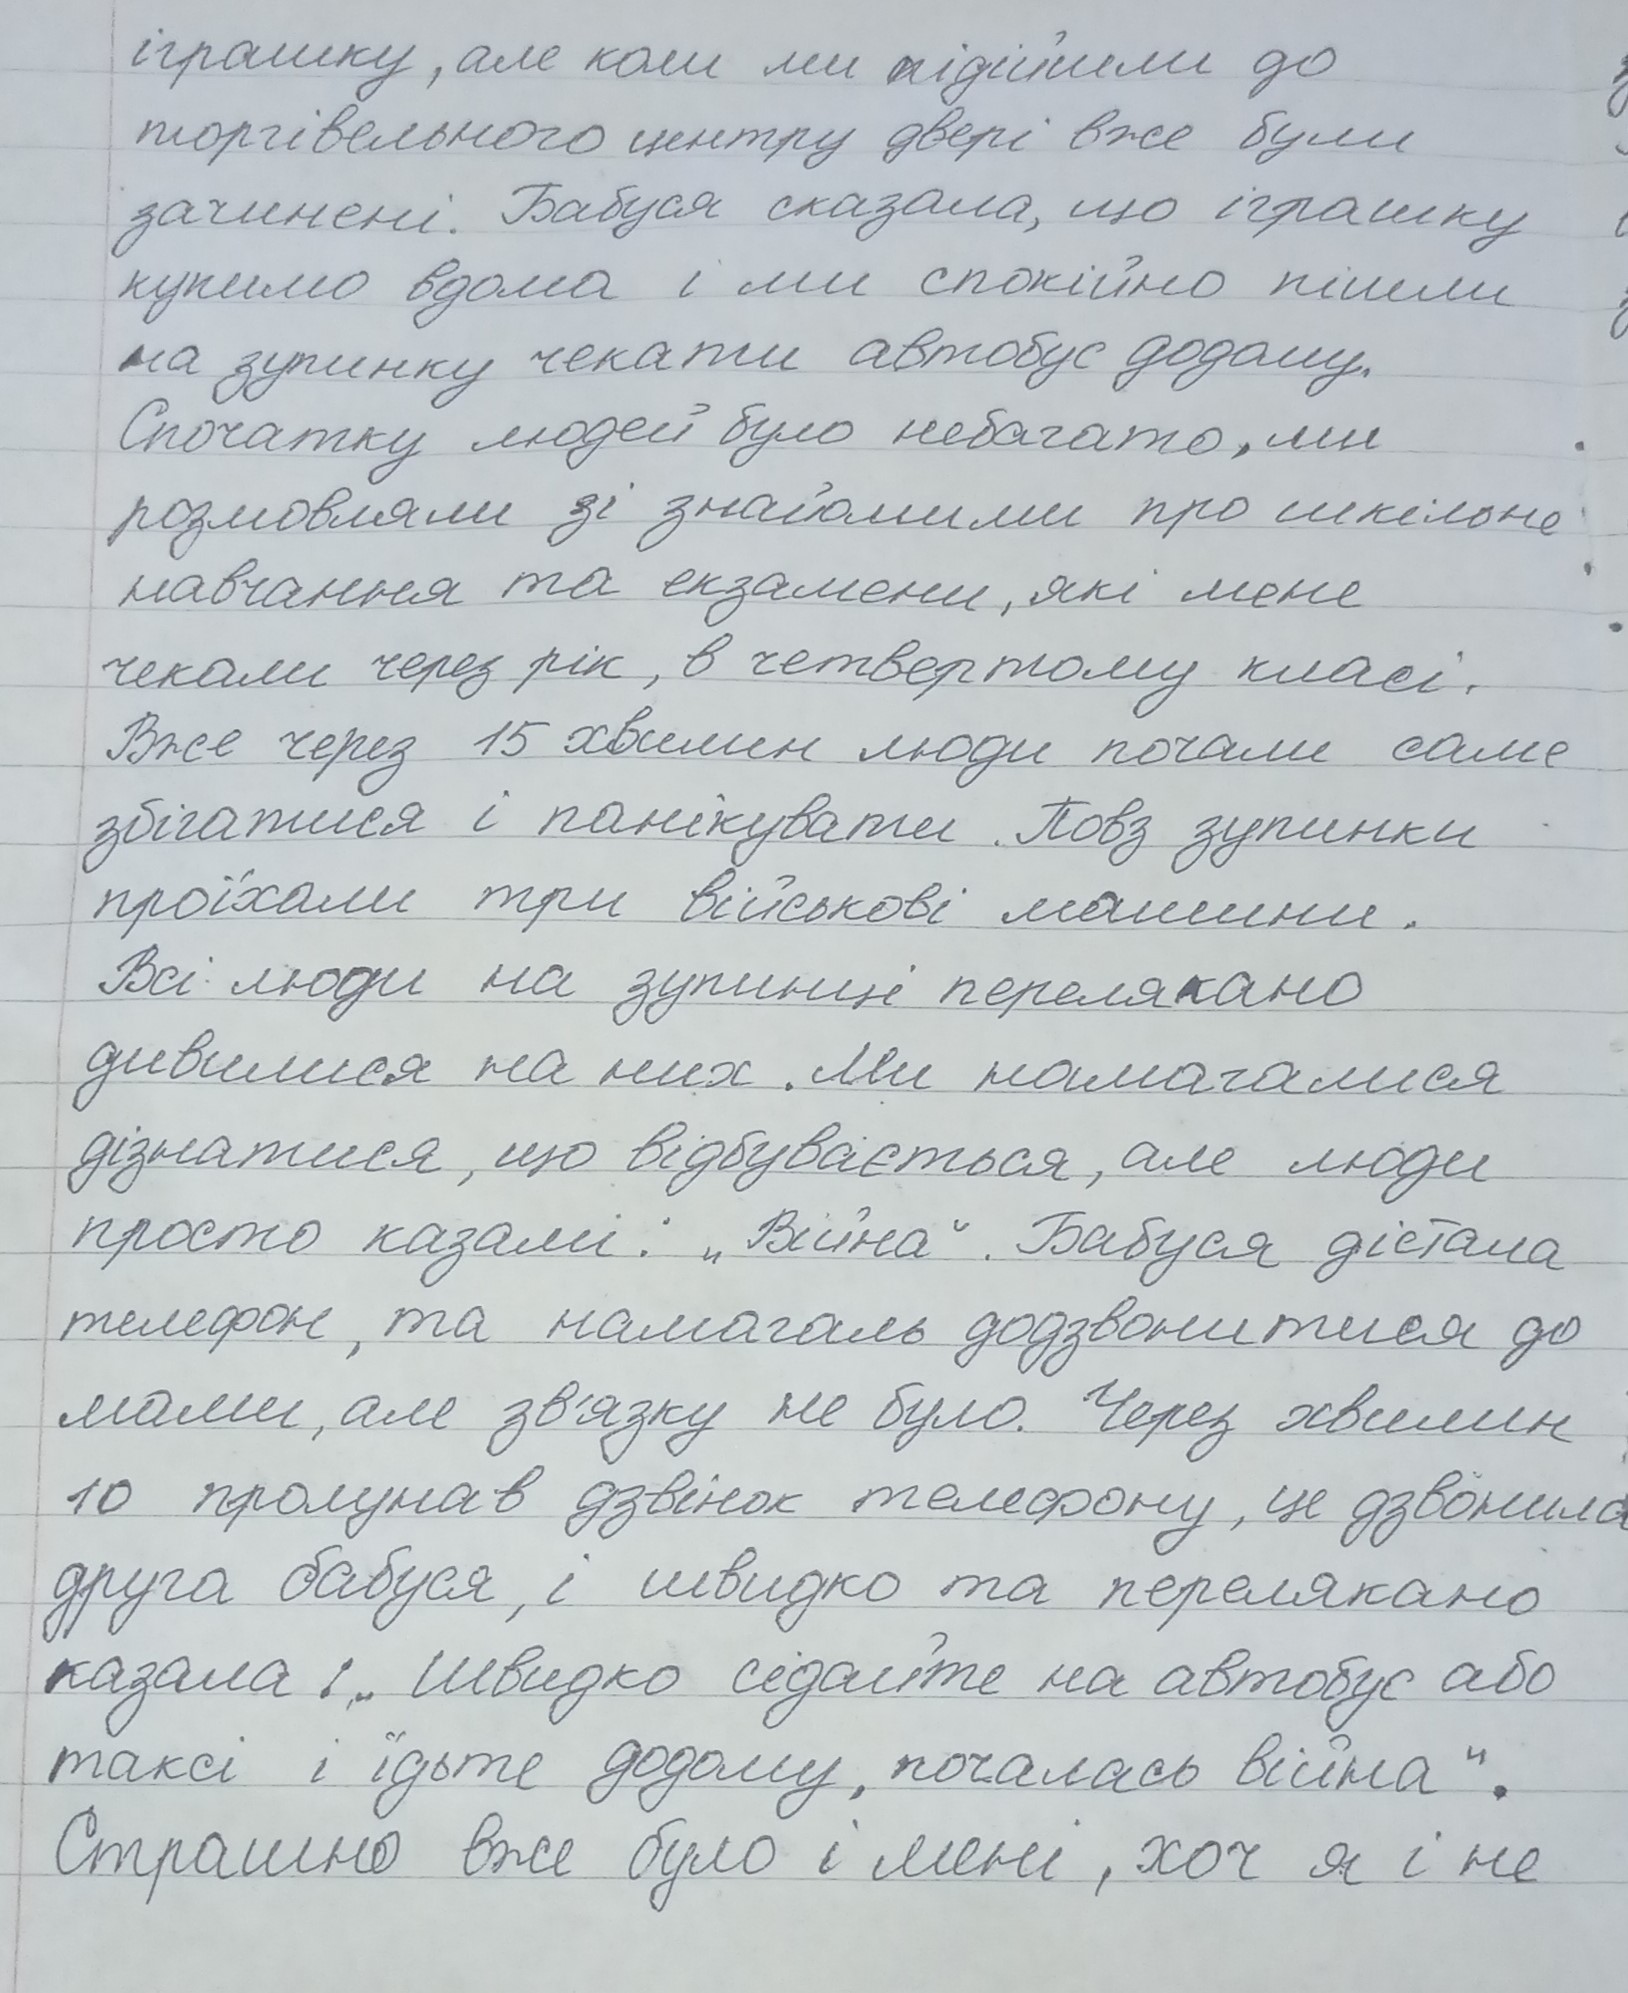 іграшку, але коли ми підійшли до
торгівельного центру двері вже були
зачинені. Бабуся сказала, що іграшку
купимо вдома і ми спокійно пішли
на зупинку чекати автобус додому.
Спочатку людей було небагато, ми
розмовляли зі знайомими про шкільне
навчання та екзамени, які мене
чекали через рік, в четвертому класі.
Вже через 15 хвилин люди почали саме
збігатися і панікувати. Повз зупинки
проїхали три військові машини.
Всі люди на зупинці перелякано
дивилися на них. Ми намагалися
дізнатися, що відбувається, але люди
просто казалі: „Війна“. Бабуся дістала
телефон, та намагаль додзвонитися до
мами, але зв'язку не було. Через хвилин
10 пролунав дзвінок телефону, це дзвонила
друга бабуся, і швидко та перелякано
казала: „Швидко сідайте на автобус або
таксі і їдьте додому, почалась війна“.
Страшно вже було і мені, хоч я і не